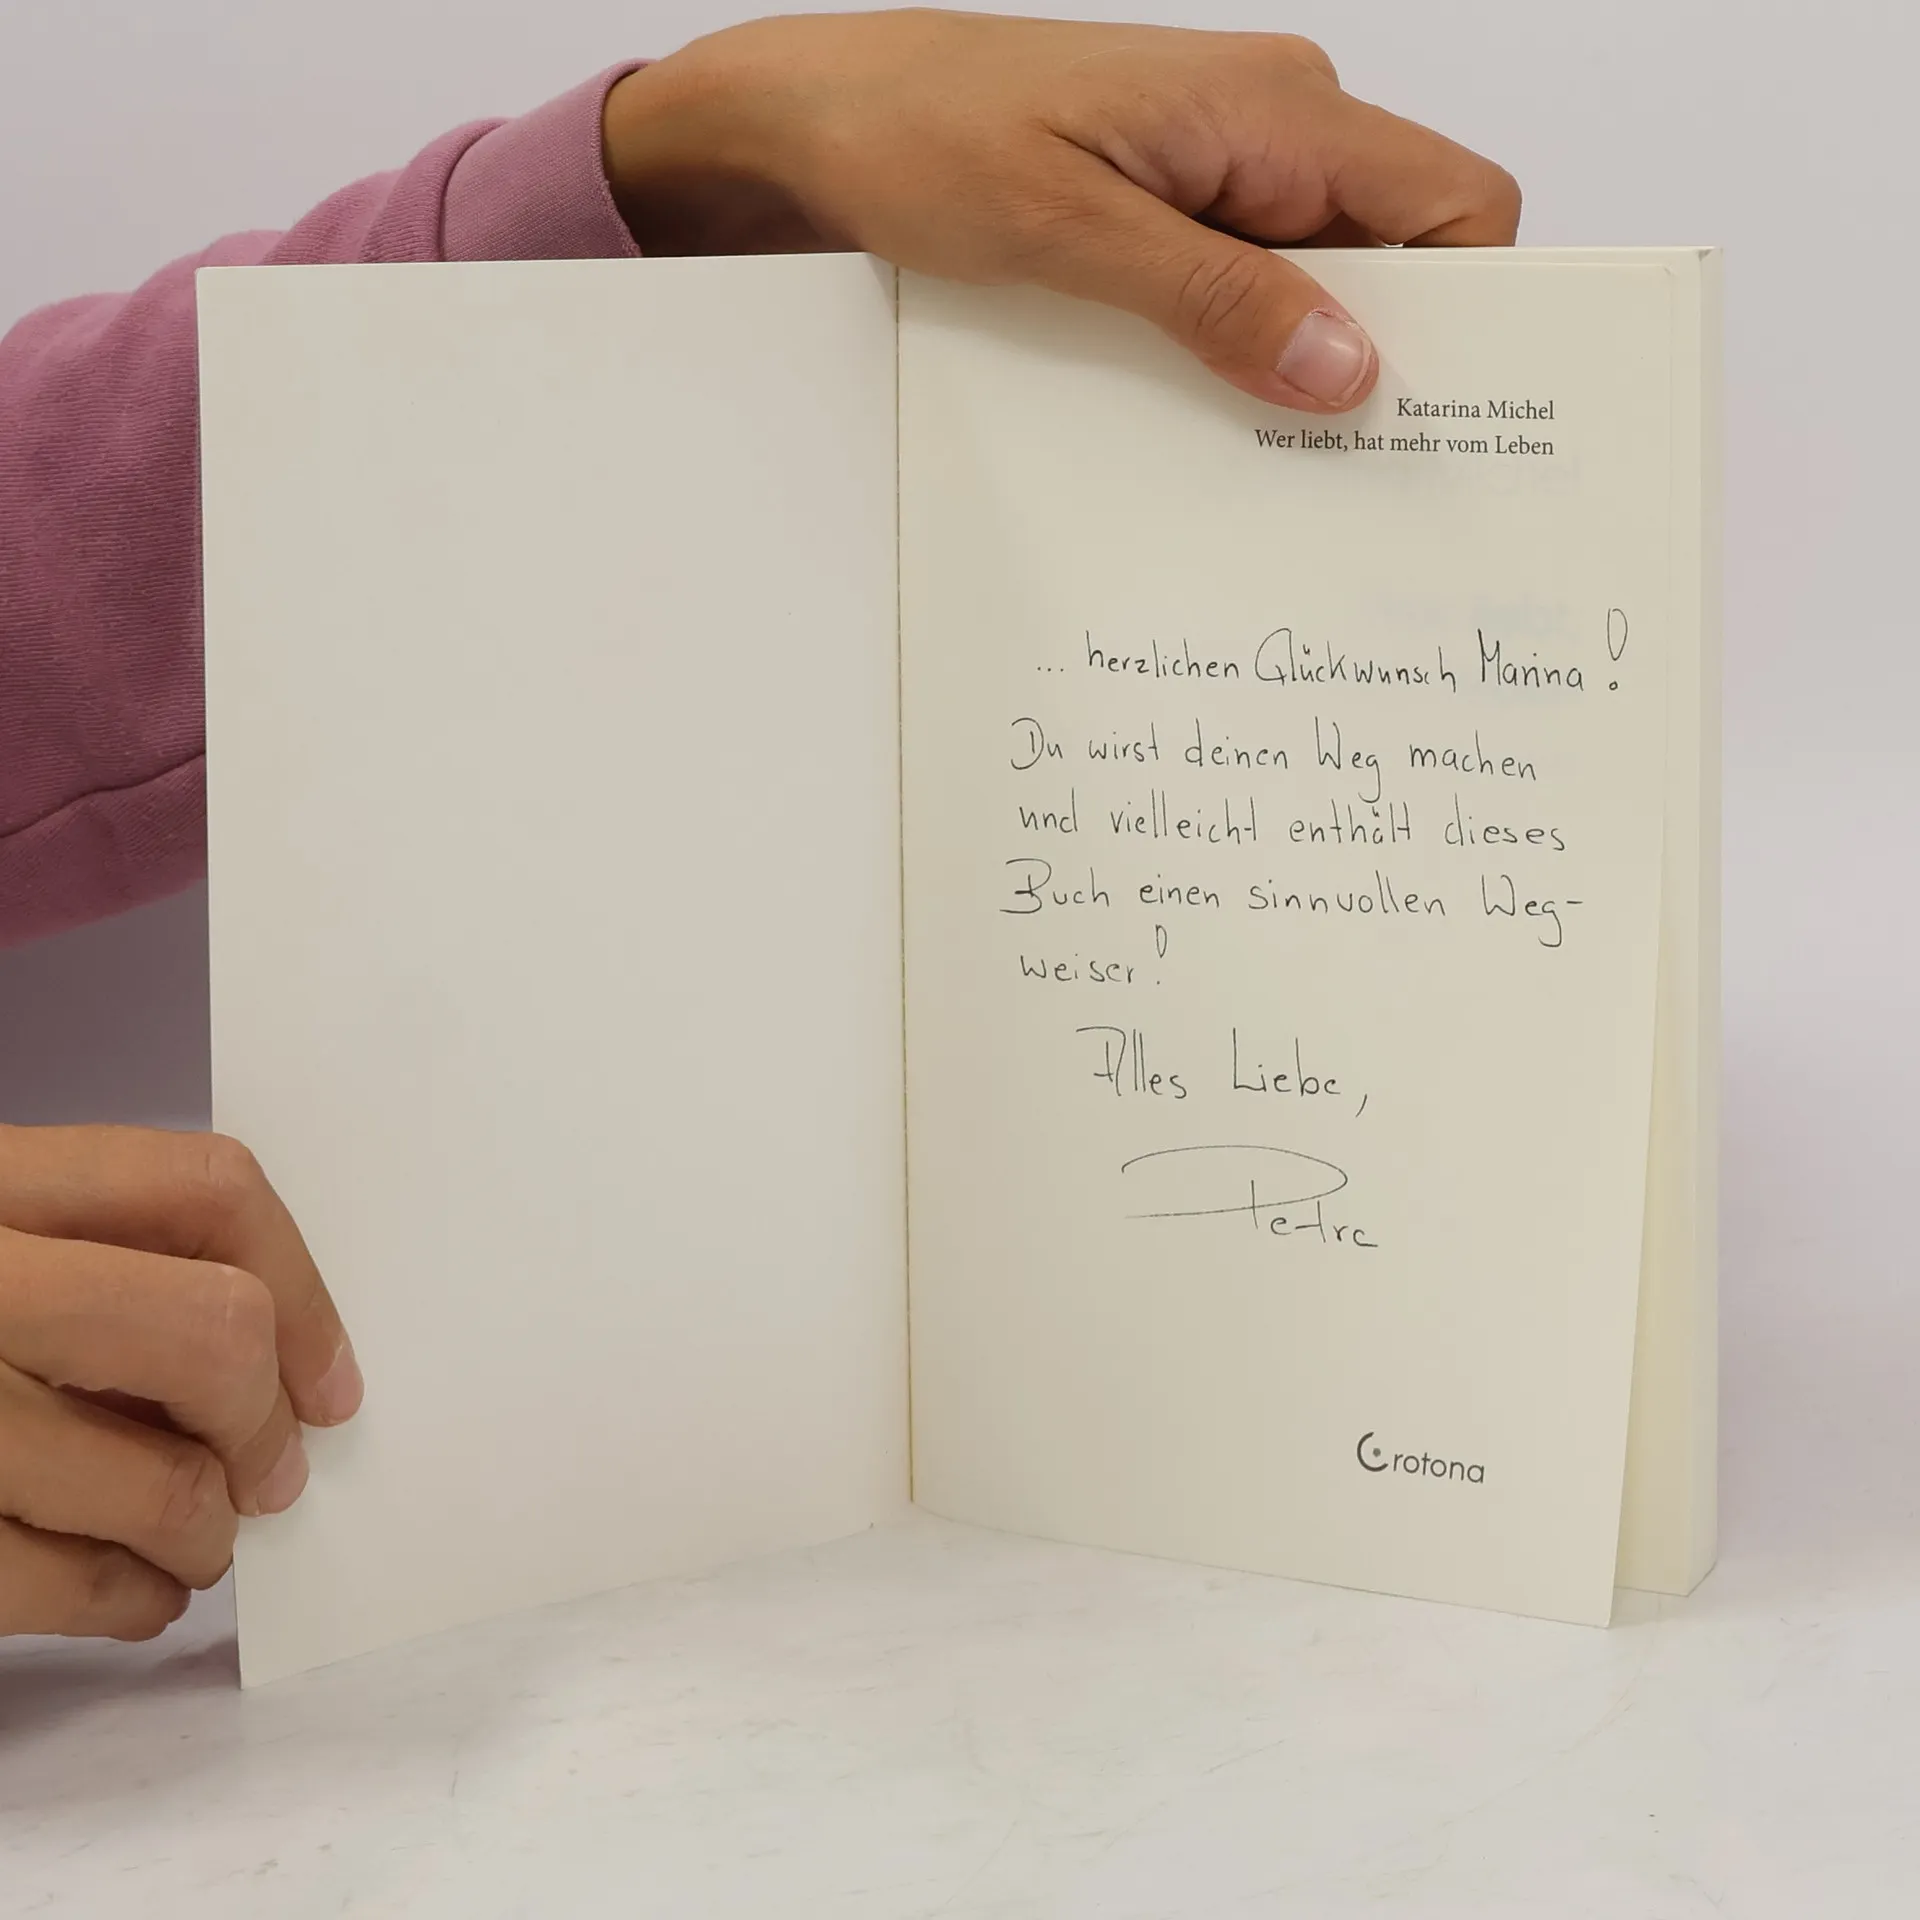 Katarina Michel
Wer liebt, hat mehr vom Leben
... herzlichen Glückwunsch Marina!
Du wirst deinen Weg machen
und vielleicht enthält dieses
Buch einen sinnvollen Weg-
weiser!
Alles Liebe,
Petra
Crotona